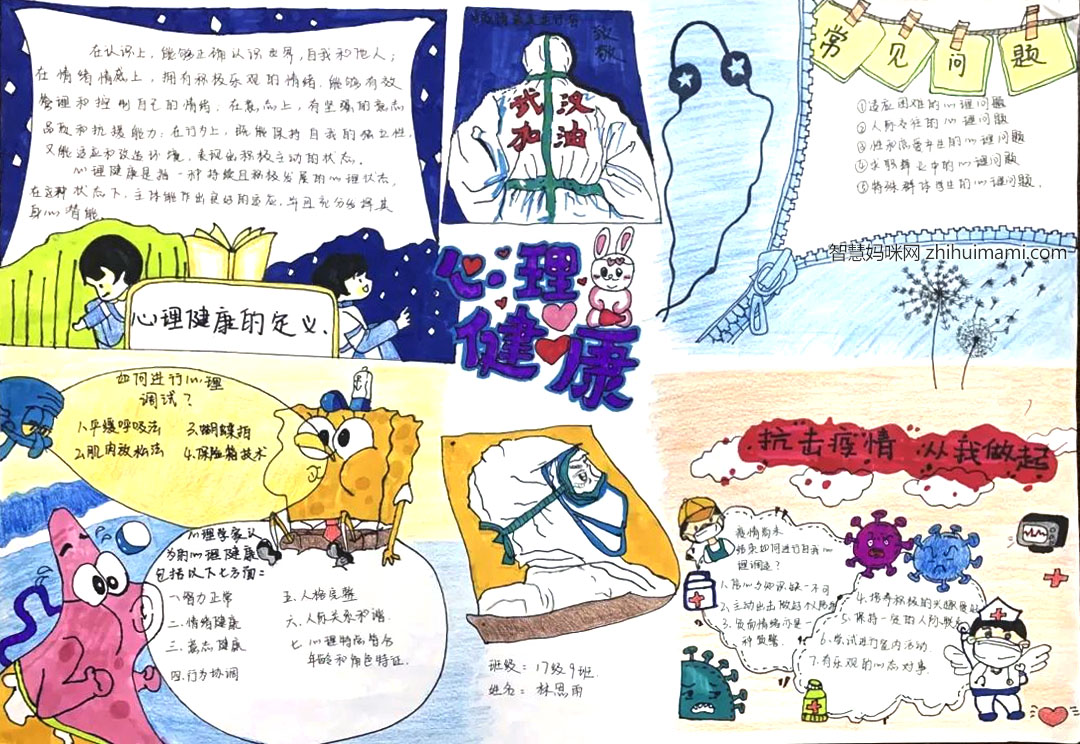 在认识上，能够正确认识世界，自我和他人；
在情绪情感上，拥有积极乐观的情绪，能够有效
管理和控制自己的情绪；在意志上，有坚强的意志
品质和抗挫能力；在行为上，既能保持自我的独立性，
又能适应和改造环境，表现出积极主动的状态。
心理健康是指一种持续且积极发展的心理状态，
在这种状态下，主体能作出良好的适应，并且充分发挥其
身心潜能。
心理健康的定义、
致敬
武汉
加油
心理
健康
常见问题
①适应困难的心理问题
②人际交往的心理问题
③性和恋爱产生的心理问题
④求职择业中的心理问题
⑤特殊群体学生的心理问题．
智慧妈咪网 zhihuimami.com
如何进行心理
调试？
1.平缓呼吸法 3.蝴蝶拍
2.肌肉放松法 4.保险箱技术
心理学家认
为的心理健康
包括以下七方面：
一.智力正常
二.情绪健康
三.意志健康
四.行为协调
五.人格完整
六.人际关系和谐
七.心理特点符合
年龄和角色特征．
班级：17级9班．
姓名：林思雨
抗击疫情 从我做起
疫情尚未
结束如何进行自我心
理调适？
1.信心与知识缺一不可
2.主动出击做好个人
3.负面情绪亦是一
种预警．
4.培养积极的兴趣爱好
5.保持一定的人际联系
6.尝试进行室内活动．
7.有乐观的心态对事．